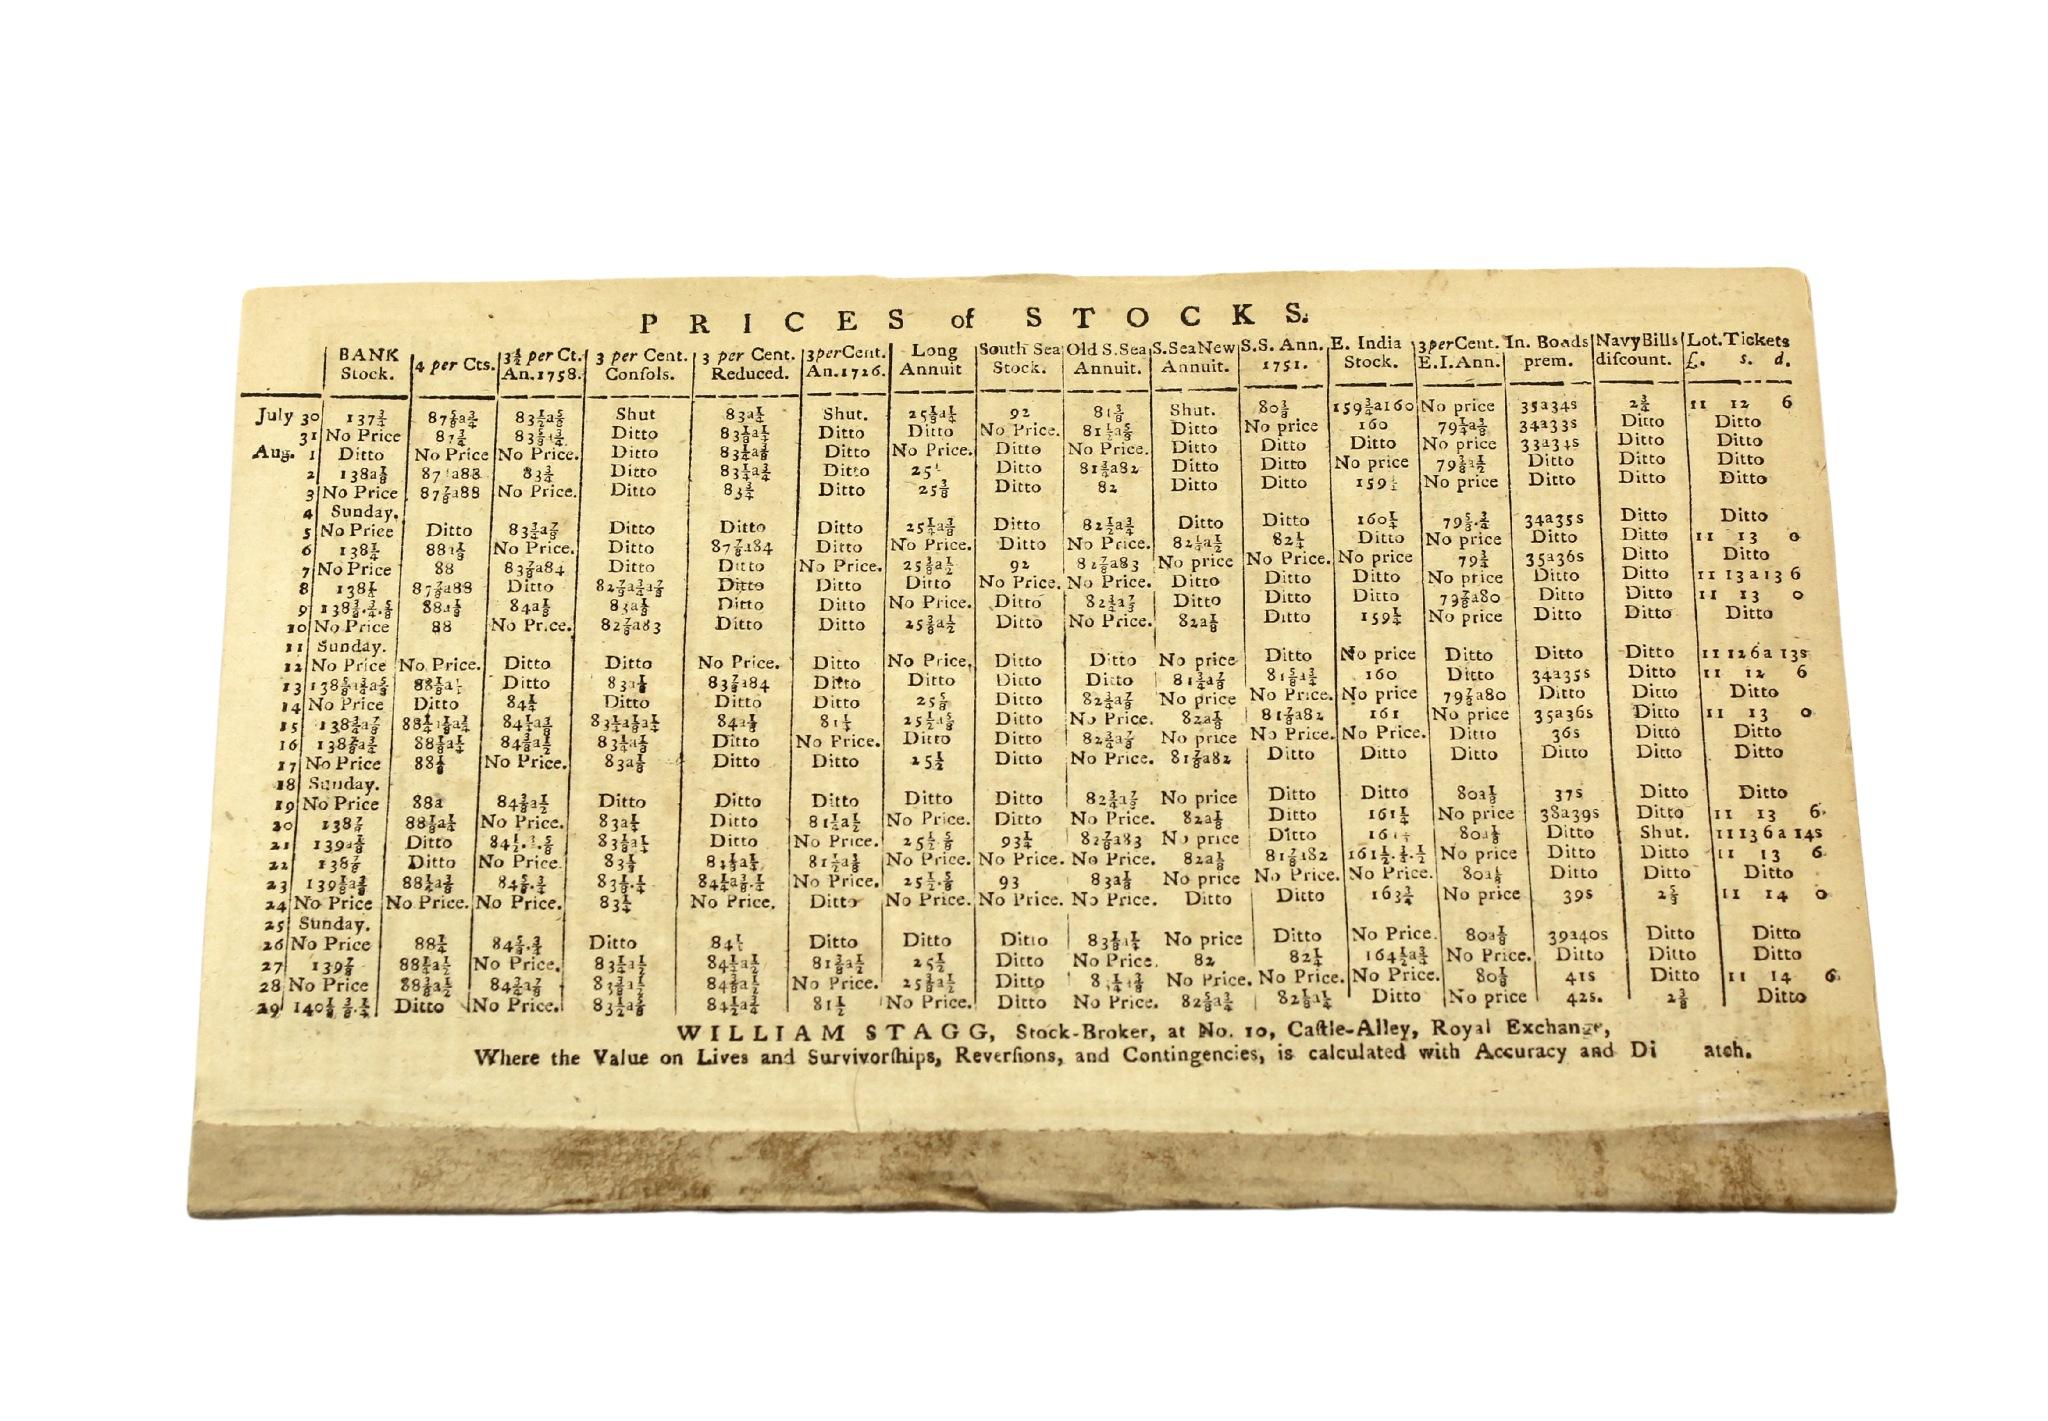 PRICES of STOCKS.
BANK Stock. | 4 per Cts. | 3½ per Ct. An. 1758. | 3 per Cent. Conſols. | 3 per Cent. Reduced. | 3 per Cent. An. 1726. | Long Annuit | South Sea Stock. | Old S. Sea Annuit. | S. Sea New Annuit. | S.S. Ann. 1751. | E. India Stock. | 3 per Cent. E.I. Ann. | In. Bonds prem. | Navy Bills diſcount. | Lot. Tickets £. s. d.
July 30 137¾ 87⅝a¾ 83½a⅝ Shut 83a¼ Shut. 25⅛a¼ 92 81⅜ Shut. 80⅜ 159¾a160 No price 35a34s 2¾ 11 12 6
31 No Price 87¾ Ditto 83⅛a¼ Ditto Ditto No Price. 81½a⅝ Ditto No price 160 79¼a⅜ 34a33s Ditto Ditto
Aug. 1 Ditto No Price No Price. Ditto 83¼a⅜ Ditto No Price. Ditto No Price. Ditto Ditto Ditto No price 33a34s Ditto Ditto
2 138a⅛ 83¾ Ditto Ditto 81¾a82 Ditto Ditto No price 79⅜a½ Ditto Ditto Ditto
3 No Price 87⅞a88 No Price. Ditto 83¾ Ditto 25⅜ Ditto 82 Ditto Ditto No price Ditto Ditto Ditto
4 Sunday.
5 No Price Ditto 83¾a⅞ Ditto Ditto Ditto 25¼a⅜ Ditto 82½a¾ Ditto Ditto 160¼ 79⅝.¾ 34a35s Ditto Ditto
6 138¼ No Price. Ditto Ditto No Price. Ditto No Price. 82¼a½ 82¼ Ditto No price Ditto Ditto 11 13 0
7 No Price 88 83⅞a84 Ditto Ditto No Price. 25⅜a½ 92 82⅞a83 No price No Price. No price 79¾ 35a36s Ditto Ditto
8 87⅞a88 Ditto Ditto Ditto Ditto No Price. No Price. Ditto Ditto Ditto No price Ditto Ditto 11 13a13 6
9 84a⅛ 83a⅛ Ditto Ditto No Price. Ditto 82¾a⅞ Ditto Ditto Ditto 79⅞a80 Ditto Ditto 11 13 0
10 No Price 88 82⅞a83 Ditto Ditto 25⅜a½ Ditto No Price. 82a⅛ Ditto 159¼ No price Ditto Ditto Ditto
11 Sunday.
12 No Price No Price. Ditto Ditto No Price. Ditto No Price, Ditto Ditto No price Ditto No price Ditto Ditto Ditto 11 12 6a 13s
13 Ditto 83a⅛ 83⅞a84 Ditto Ditto Ditto Ditto 81¾a⅞ 81⅝a¾ 160 Ditto 34a35s Ditto 11 12 6
14 No Price Ditto 84¼ Ditto Ditto Ditto 25⅝ Ditto 82¾a⅞ No price No Price. No price 79⅞a80 Ditto Ditto Ditto
15 138¾a⅞ 84¼a⅜ 84a⅛ 81¼ Ditto No Price. 82a⅛ 81⅞a82 161 No price 35a36s Ditto 11 13 0
16 88⅛a¼ 84⅜a½ Ditto No Price. Ditto Ditto 82¾a⅞ No price No Price. No Price. Ditto 36s Ditto Ditto
17 No Price 88⅛ No Price. 83a⅛ Ditto Ditto 25½ Ditto No Price. 81⅞a82 Ditto Ditto Ditto Ditto Ditto Ditto
18 Sunday.
19 No Price 88a 84⅜a½ Ditto Ditto Ditto Ditto Ditto 82¾a⅞ No price Ditto Ditto 80a⅛ 37s Ditto Ditto
20 138⅞ 88⅛a¼ No Price. 83a¼ Ditto 81¼a½ No Price. Ditto No Price. 82a⅛ Ditto 161¼ No price 38a39s Ditto 11 13 6
21 139a⅛ Ditto 83⅛a¼ Ditto No Price. Ditto 25½.⅝ 93¼ 82⅞a83 No price Ditto 80a⅛ Ditto Shut. 11 13 6a 14s
22 138⅞ Ditto No Price. No Price. No Price. No Price. 82a⅛ 81⅞a82 No price Ditto Ditto 11 13 6
23 88¼a⅜ 84⅝.¾ No Price. 25½.⅝ 93 83a⅛ No price No Price. No Price. 80a⅛ Ditto Ditto Ditto
24 No Price No Price. No Price. 83¼ No Price. Ditto No Price. No Price. No Price. Ditto Ditto 163¾ No price 39s 11 14 0
25 Sunday.
26 No Price 88¼ 84⅝.¾ Ditto Ditto Ditto Ditto No price Ditto No Price. 80a⅛ 39a40s Ditto Ditto
27 139⅞ 88¼a½ No Price. 83¼a½ 81⅜a½ 25½ Ditto No Price. 82 82¼ 164½a¾ No Price. Ditto Ditto Ditto
28 No Price 88⅜a½ 84¾a⅞ 83⅜a½ 84⅜a½ No Price. 25⅜a½ Ditto No Price. No Price. No Price. 80⅛ 41s Ditto 11 14 6
29 Ditto No Price. 83½a⅝ 84½a¾ 81½ No Price. Ditto No Price. 82⅝a¾ 82⅛a¼ Ditto No price 42s. 2⅜ Ditto
WILLIAM STAGG, Stock-Broker, at No. 10, Caſtle-Alley, Royal Exchange,
Where the Value on Lives and Survivorſhips, Reverſions, and Contingencies, is calculated with Accuracy and Di atch.